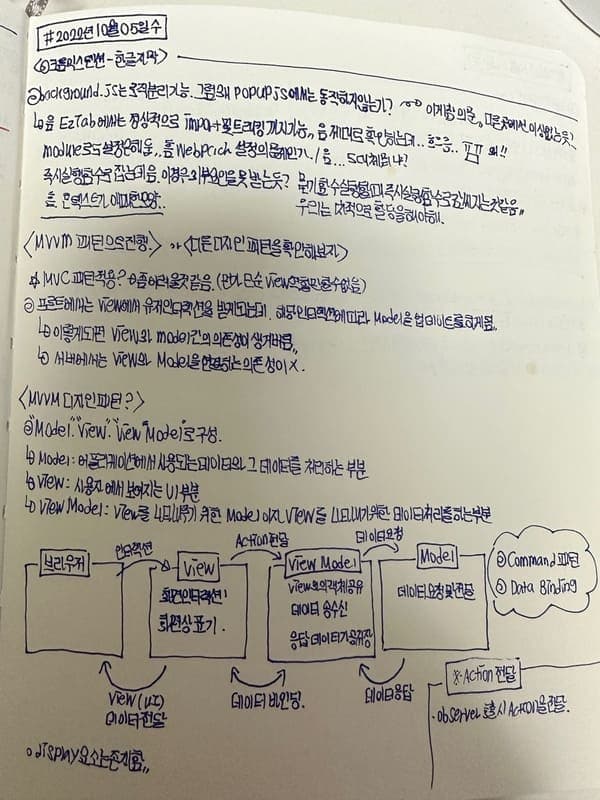 #2022년 10월 05일 수
<크롬익스텐션 - 한글지마>
background.js는 로직분리가능. 그럼 왜 POPUP.js에서는 동작하지 않는가? 이게참 의문,, 다른곳에선 이상없는듯?
음 EzTab에서는 정상적으로 import 및 트리킹까지 가능, 음 제대로 확인하는데.. 흐음.. 왜!!
module로도 설정은해둠, 흠 WebPack 설정의 문제인가? / 음...
즉시실행함수로 잡는데음. 이경우 외부요인을 못 받는듯?
흠, 컨텍스트가 애매한모양.
우리는 대적으로 할당을 해야해.
<MVVM 패턴으로 진행.> → <다른 디자인 패턴을 확인해보자>
MVC 패턴적용? 은 좀 어려울것 같음. (먼가 단순 View의 역할만 할 수 없음)
프론트에서는 View에서 유저인터랙션을 받게되는데. 해당 인터랙션에 따라 Model을 업데이트를 하게됨.
이렇게되면 View와 model간의 의존성이 생겨버림,,
서버에서는 View와 Model을 연결하는 의존성이 X.
<MVVM 디자인패턴?>
"Model". "View". "View Model"로 구성.
Model: 어플리케이션에서 사용되는 데이터와 그 데이터를 처리하는 부분
View: 사용자에서 보여지는 UI 부분
View Model: View를 나타내주기 위한 Model이자 View를 나타내기위한 데이터처리를 하는 부분
인터랙션 Action전달 데이터요청
브라우저 View View Model Model
화면인터랙션 !
화면상 표기.
View와의 객체공유
데이터 송수신
응답 데이터 가공 저장
데이터 요청 및 전달
Command 패턴
Data Binding
View(UI)
데이터전달
데이터 바인딩.
데이터응답
※ Action 전달
· observer 호출시 Action을 전달.
display 요소는 존재함,,